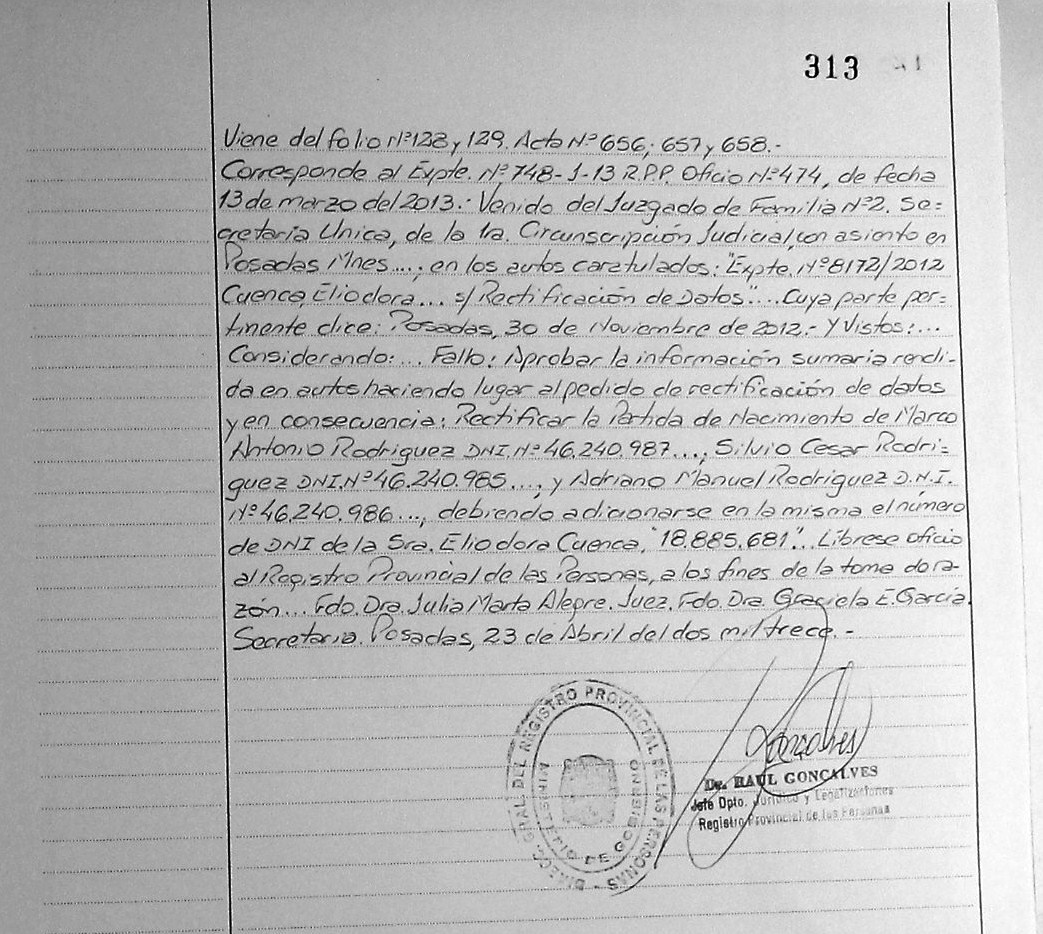 313
Viene del folio Nº 128 y 129. Acta Nº 656; 657 y 658.-
Corresponde al Expte. Nº 748-J-13 R.P.P. Oficio Nº 474, de fecha
13 de marzo del 2013.- Venido del Juzgado de Familia Nº 2. Se=
cretaria Unica, de la 1ra. Circunscripción Judicial, con asiento en
Posadas Mnes...; en los autos caratulados: "Expte. Nº 8172/2012
Cuenca, Eliodora... s/ Rectificación de Datos"... Cuya parte per=
tinente dice: Posadas, 30 de Noviembre de 2012.- Y Vistos:...
Considerando:... Fallo: Aprobar la información sumaria rendi-
da en autos haciendo lugar al pedido de rectificación de datos
y en consecuencia: Rectificar la Partida de Nacimiento de Marco
Antonio Rodriguez DNI. Nº 46.240.987...; Silvio Cesar Rodri=
guez DNI. Nº 46.240.985..., y Adriano Manuel Rodriguez D.N.I.
Nº 46.240.986..., debiendo adicionarse en la misma el número
de DNI de la Sra. Eliodora Cuenca, "18.885.681"... Librese oficio
al Registro Provincial de las Personas, a los fines de la toma de ra-
zón... Fdo. Dra. Julia Marta Alegre. Juez. Fdo. Dra. Graciela E. García.
Secretaria. Posadas, 23 de Abril del dos mil trece.-
DIRECC. GRAL. DEL REGISTRO PROVINCIAL DE LAS PERSONAS -
MINISTERIO DE GOBIERNO
Goncalves
Dr. RAUL GONCALVES
Jefe Dpto. Jurídico y Legalizaciones
Registro Provincial de las Personas